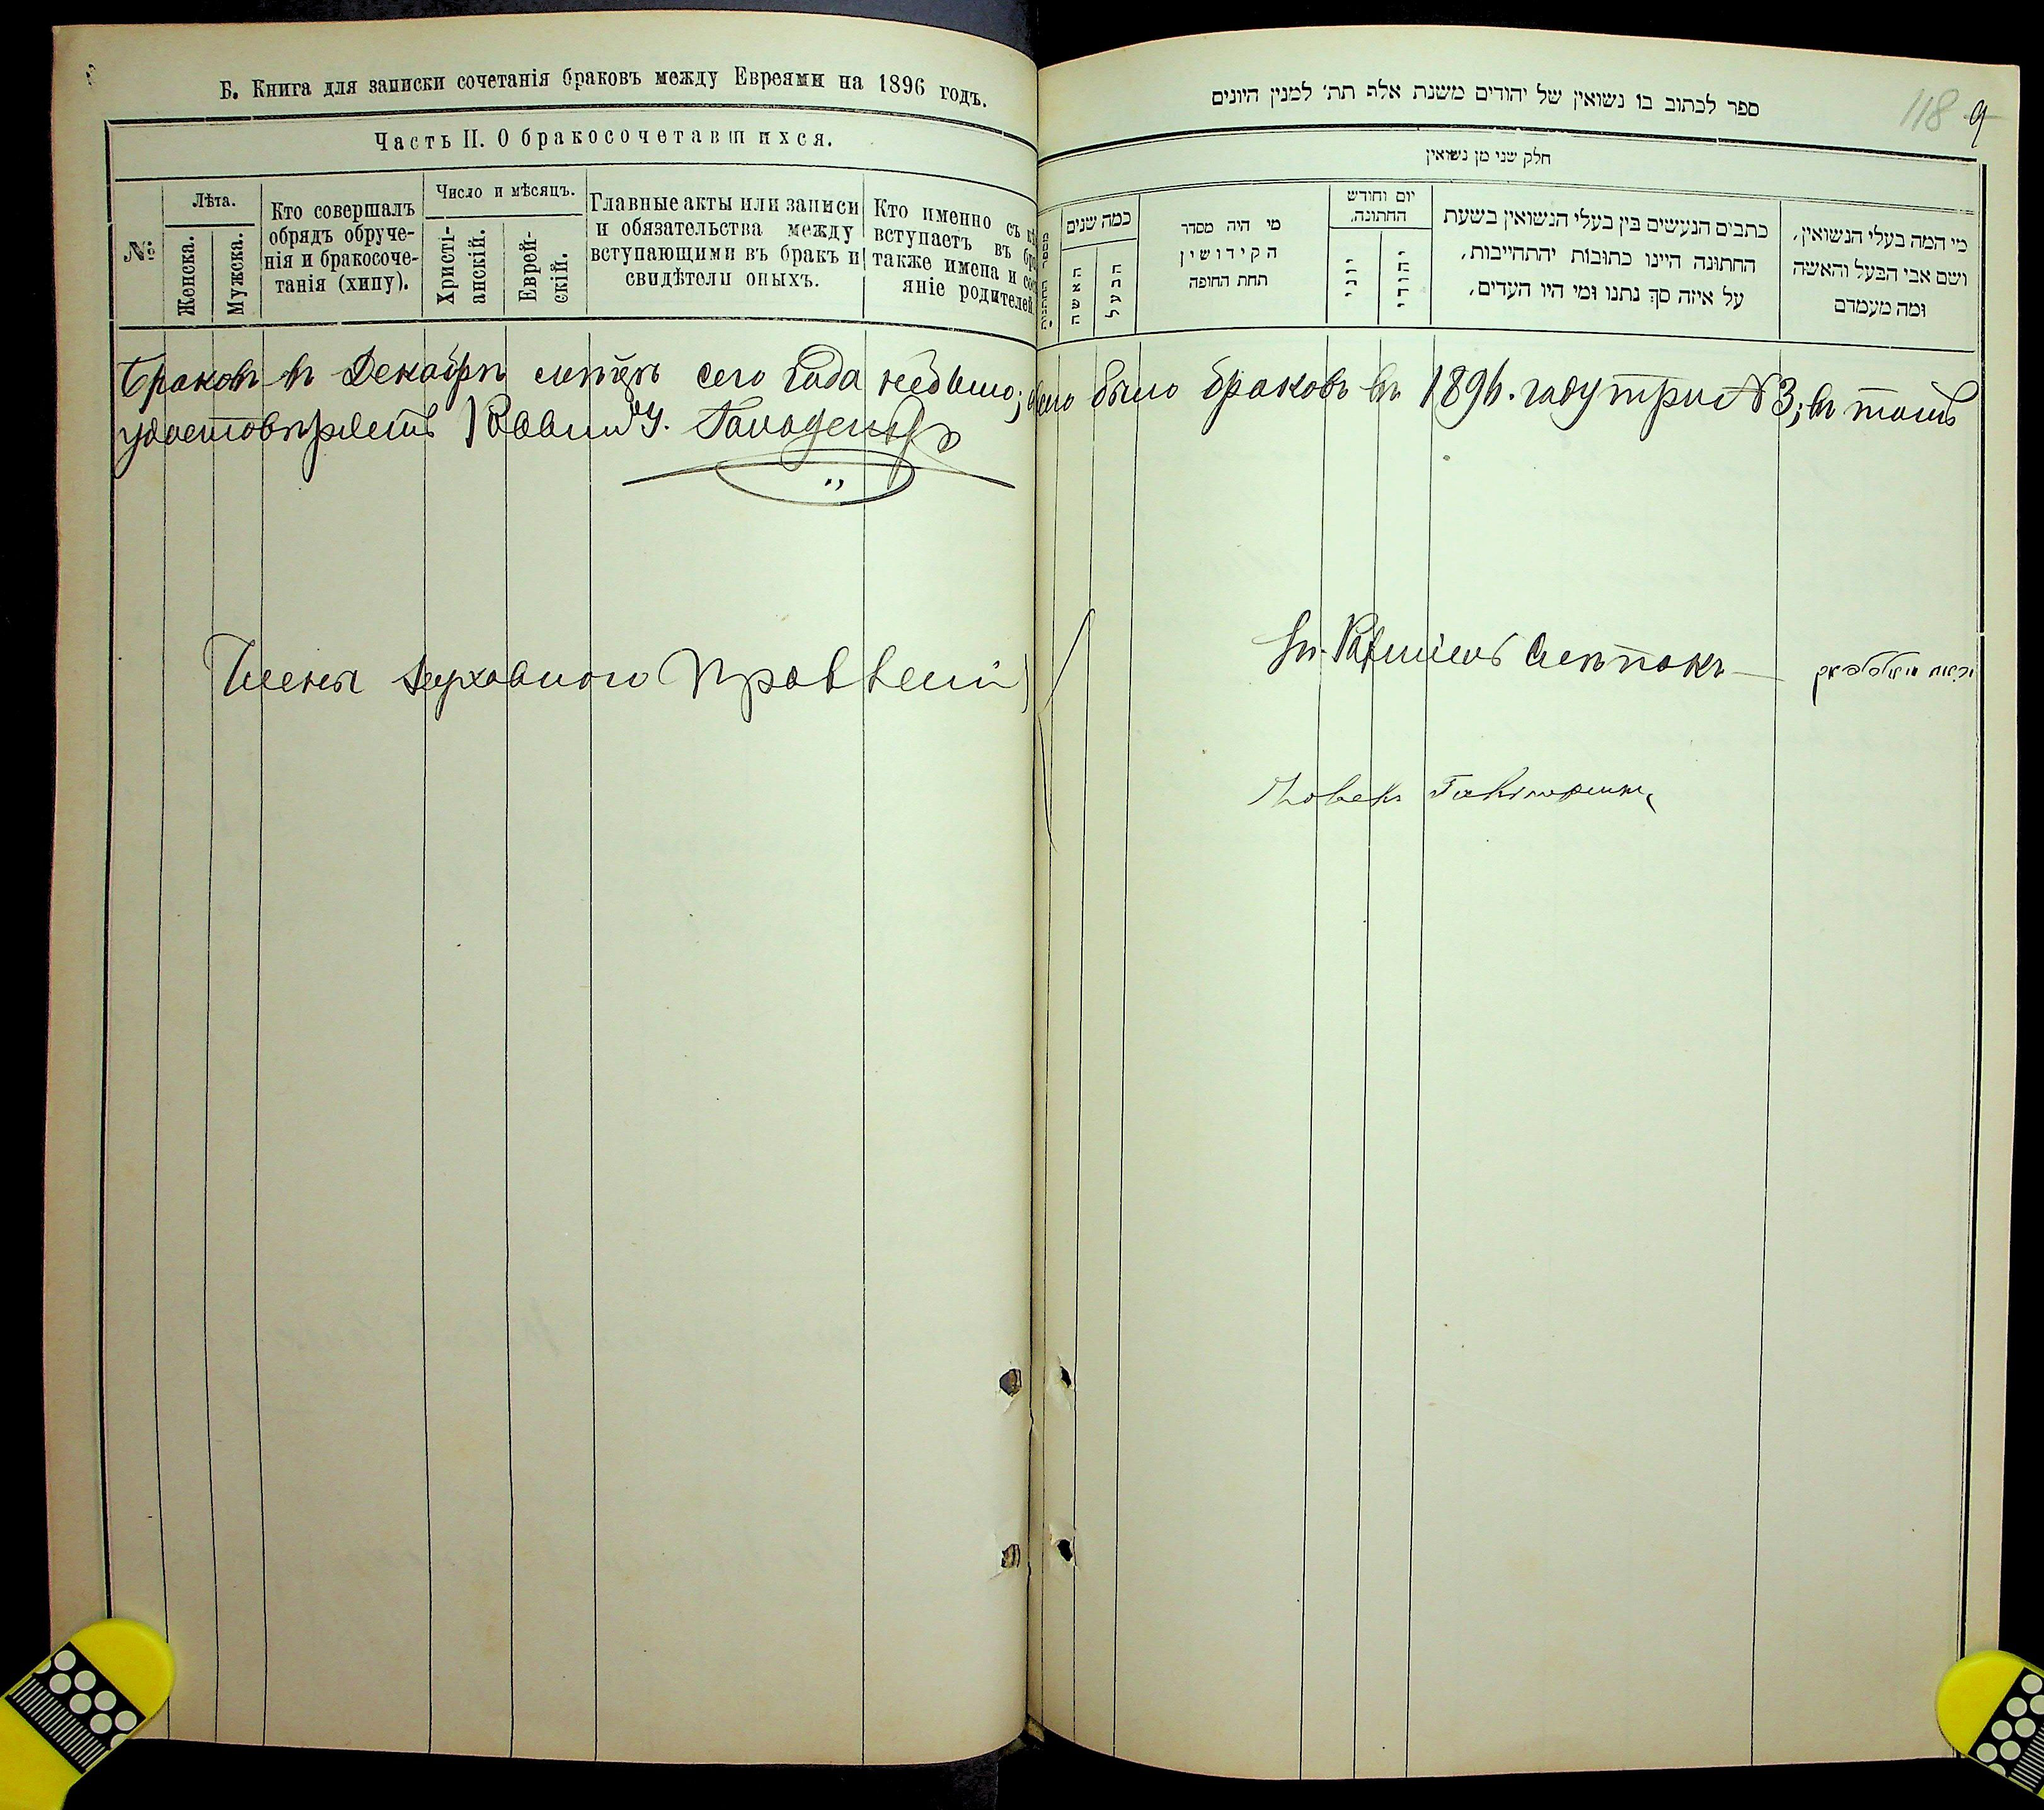 Б. Книга для записки сочетанія браковъ между Евреями на 1896 годъ.
Часть II. О бракосочетавшихся.
№
Лѣта.
Женска.
Мужска.
Кто совершалъ
обрядъ обруче-
нія и бракосоче-
танія (хипу).
Число и мѣсяцъ.
Христі-
анскій.
Еврей-
скій.
Главные акты или записи
и обязательства между
вступающими въ бракъ и
свидѣтели оныхъ.
Кто именно съ
вступаетъ въ
также имена и
яніе родителей
ספר לכתוב בו נשואין של יהודים משנת אלף תת' למנין היונים
118 9
חלק שני מן נשואין
מספר החתונות
כמה שנים
האשה
הבעל
מי היה מסדר
הקידושין
תחת החופה
יום וחודש
החתונה.
יוני
יהודי
כתבים הנעשים בין בעלי הנשואין בשעת
החתונה היינו כתובות יהתחייבות,
על איזה סך נתנו ומי היו העדים,
מי המה בעלי הנשואין,
ושם אבי הבעל והאשה
ומה מעמדם
Браковъ въ Декабрѣ мѣсяцѣ сего года небыло; всего было браковъ въ 1896. году три № 3; въ томъ
удостовѣряетъ Раввинъ
Члены Духовнаго Правленія